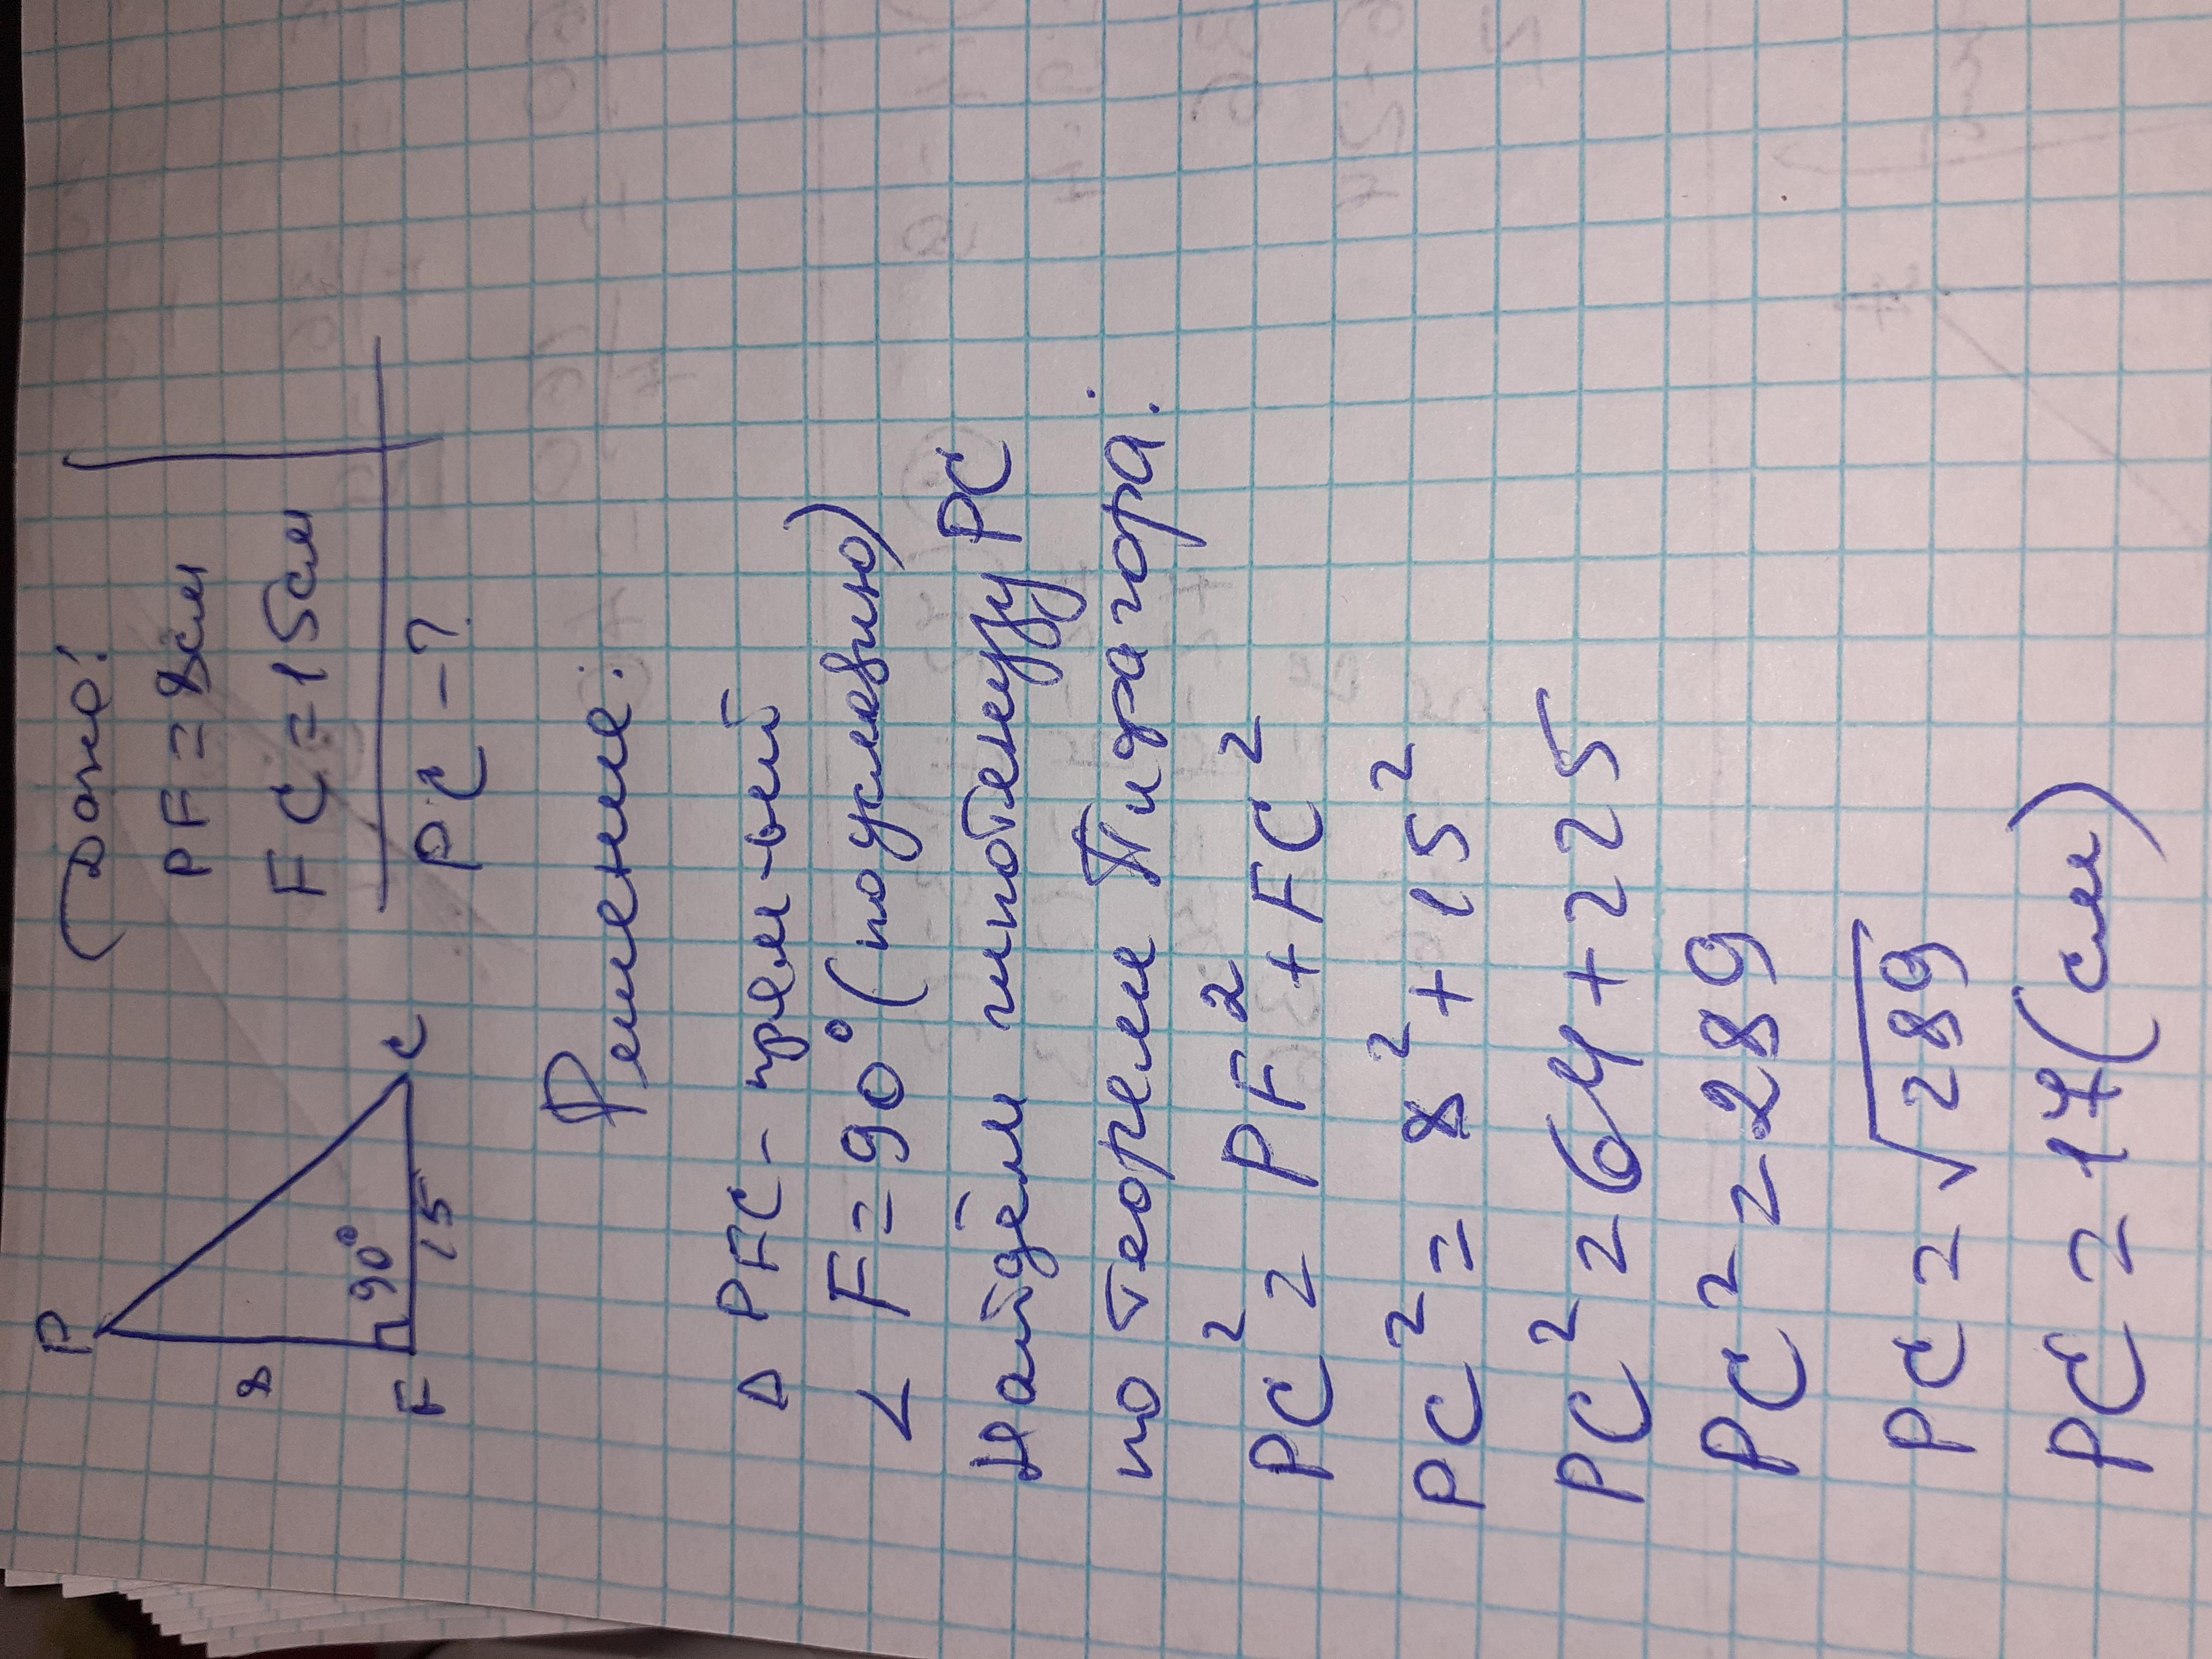 P
8
90°
F
15
C
Дано:
PF = 8см
FC = 15см
PC - ?
Решение:
Δ PFC - прям-ый
∠ F = 90° (по условию)
Найдём гипотенузу PC
по теореме Пифагора:
PC² = PF² + FC²
PC² = 8² + 15²
PC² = 64 + 225
PC² = 289
PC = √289
PC = 17(см)